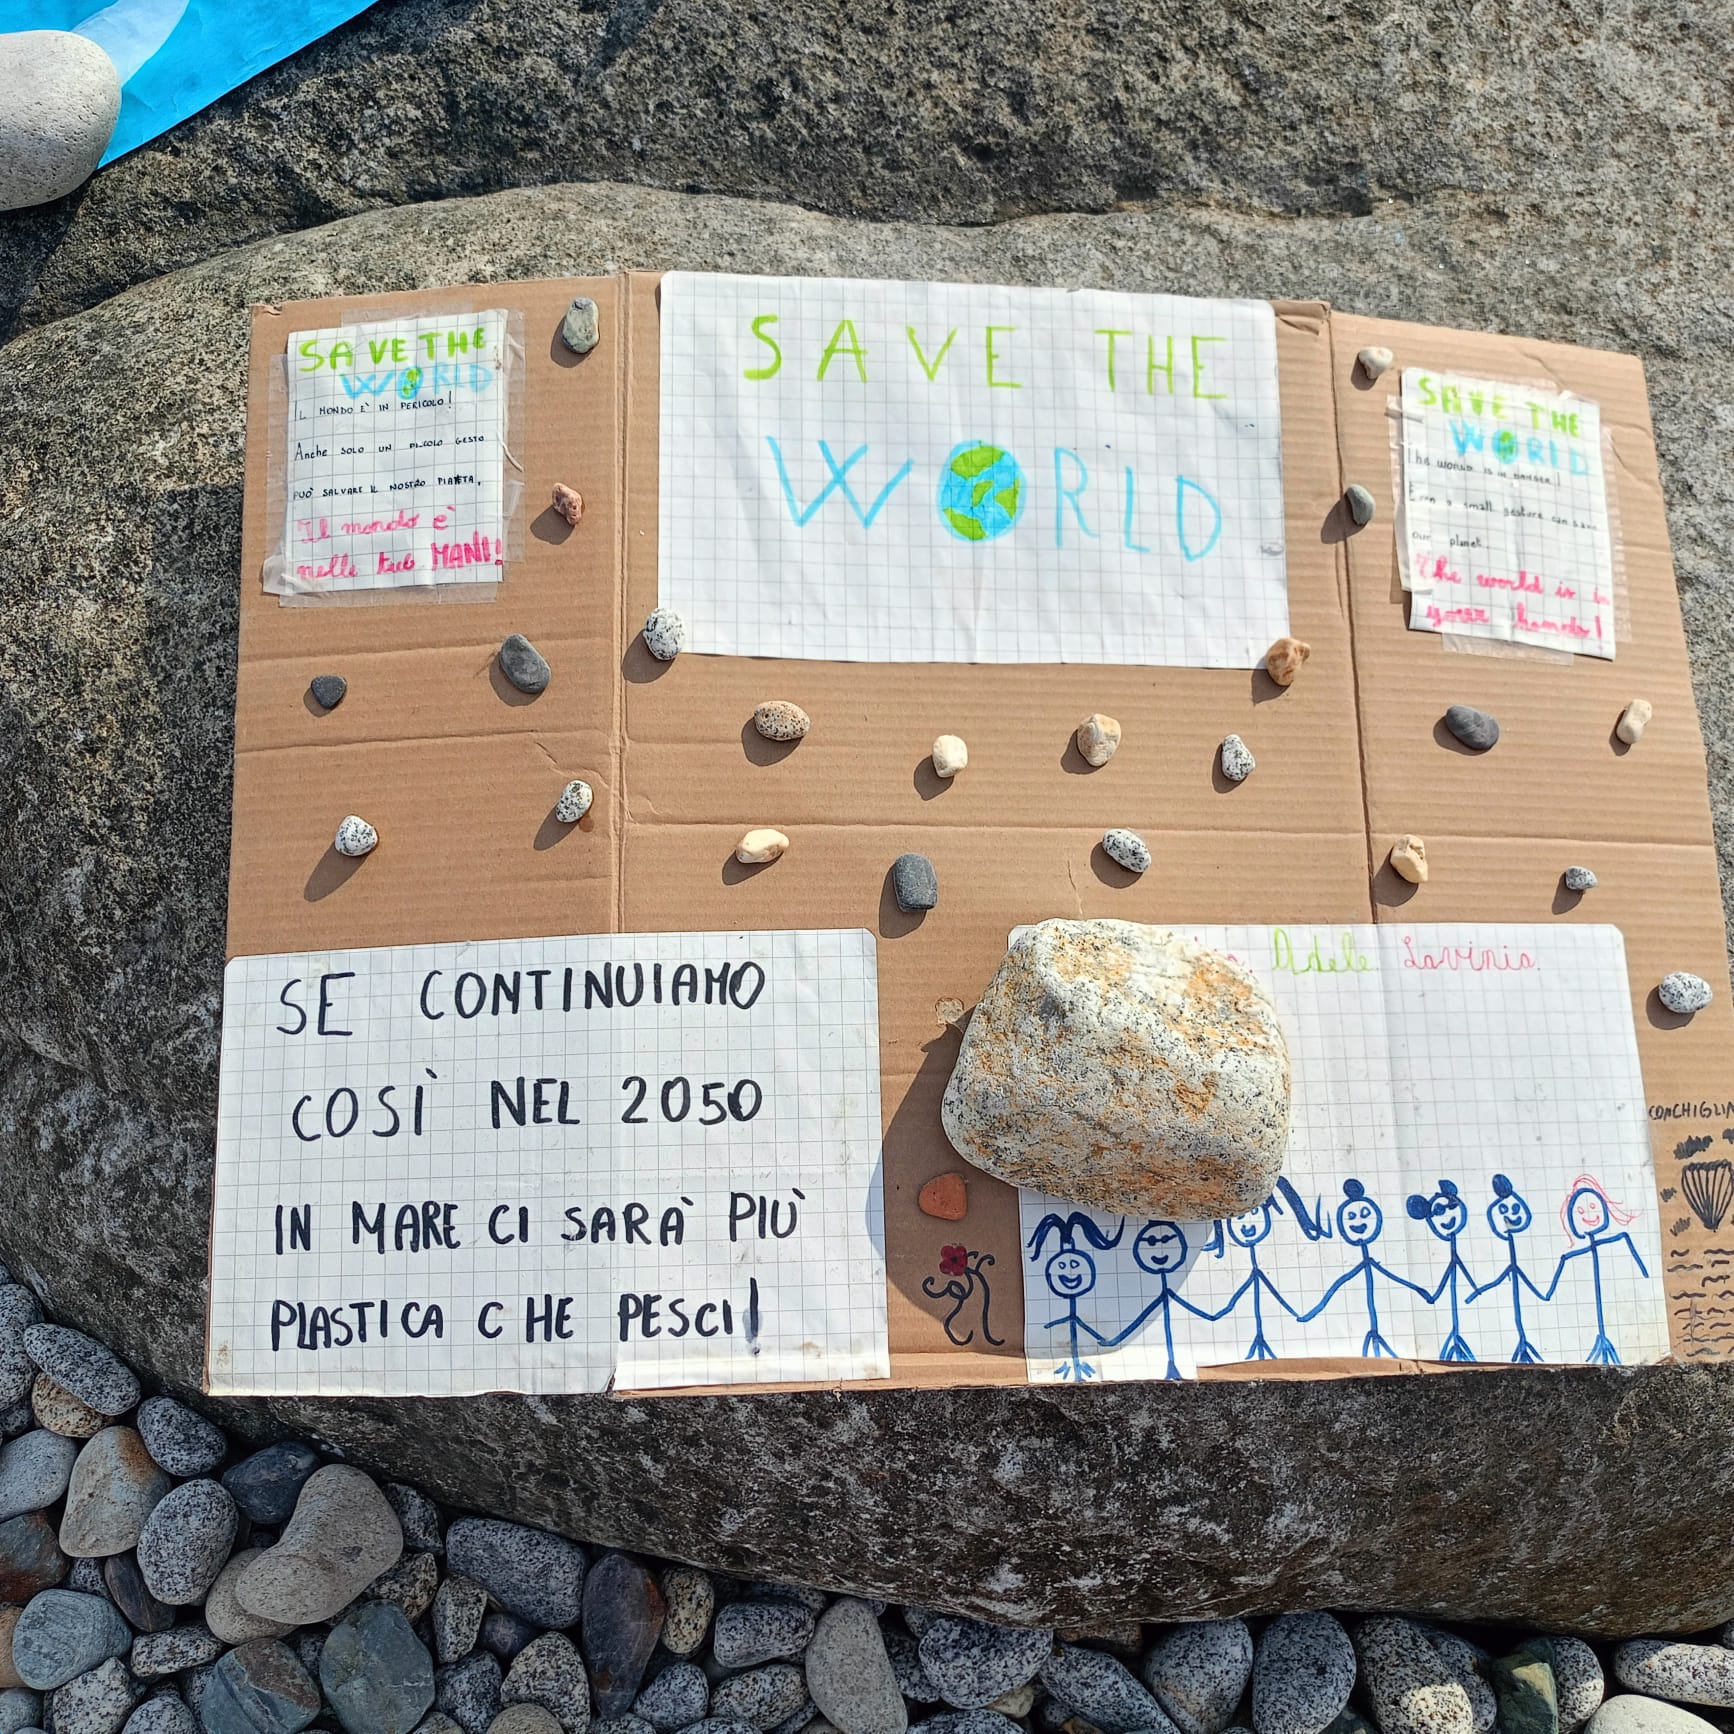 SAVE THE
WORLD
IL MONDO E' IN PERICOLO!
Anche SOLO UN PICCOLO GESTO
PUO' SALVARE IL NOSTRO PIANETA.
Il mondo è
nelle tue MANI!
SAVE THE
WORLD
SAVE THE
WORLD
The world is in danger!
Even a small gesture can save
our planet.
The world is in
your hands!
SE CONTINUIAMO
COSÌ NEL 2050
IN MARE CI SARÀ PIÙ
PLASTICA CHE PESCI!
Adele Lavinia.